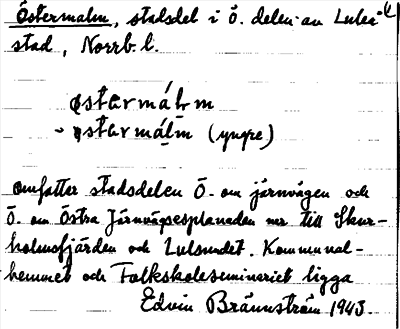 Östermalm, stadsdel i Ö. delen av Luleå
stad, Norrb. l.
østərmálm
- østərmálm (yngre)
omfattar stadsdelen Ö. om järnvägen och
Ö. om Östra Järnvägsesplanaden ner till Skur-
holmsfjärden och Lulsundet. Kommunal-
hemmet och Folkskoleseminariet ligga
Edvin Brännström 1943.